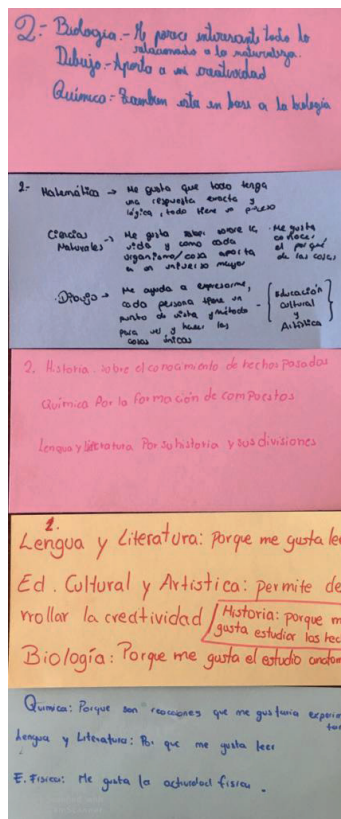 2.- Biología.- Me parece interesante todo lo
relacionado a la naturaleza.
Dibujo.- Aporta a mi creatividad
Química = Tambien esta en base a la biología
2.- Matemática → Me gusta que todo tenga
una respuesta exacta y
lógica, todo tiene un proceso
Ciencias Naturales → Me gusta saber sobre la
vida y como cada
organismo/cosa aporta
a un universo mayor
. Me gusta
conocer
el por qué
de las cosas
. Dibujo → Me ayuda a expresarme,
cada persona tiene un
punto de vista y método
para ver y hacer las
cosas únicas
- { Educación
Cultural
y
Artística }
2. Historia sobre el conocimiento de hechos pasados
Química Por la formación de compuestos
Lengua y literatura Por su historia y sus divisiones
2.
Lengua y Literatura: Porque me gusta lee
Ed. Cultural y Artística: permite de
rrollar la creatividad
Historia: porque m
gusta estudiar los hec
Biología: Porque me gusta el estudio anatom
Química: Porque son reacciones que me gustaria experim
Lengua y Literatura: Por que me gusta leer
E. Física: Me gusta la actividad física.